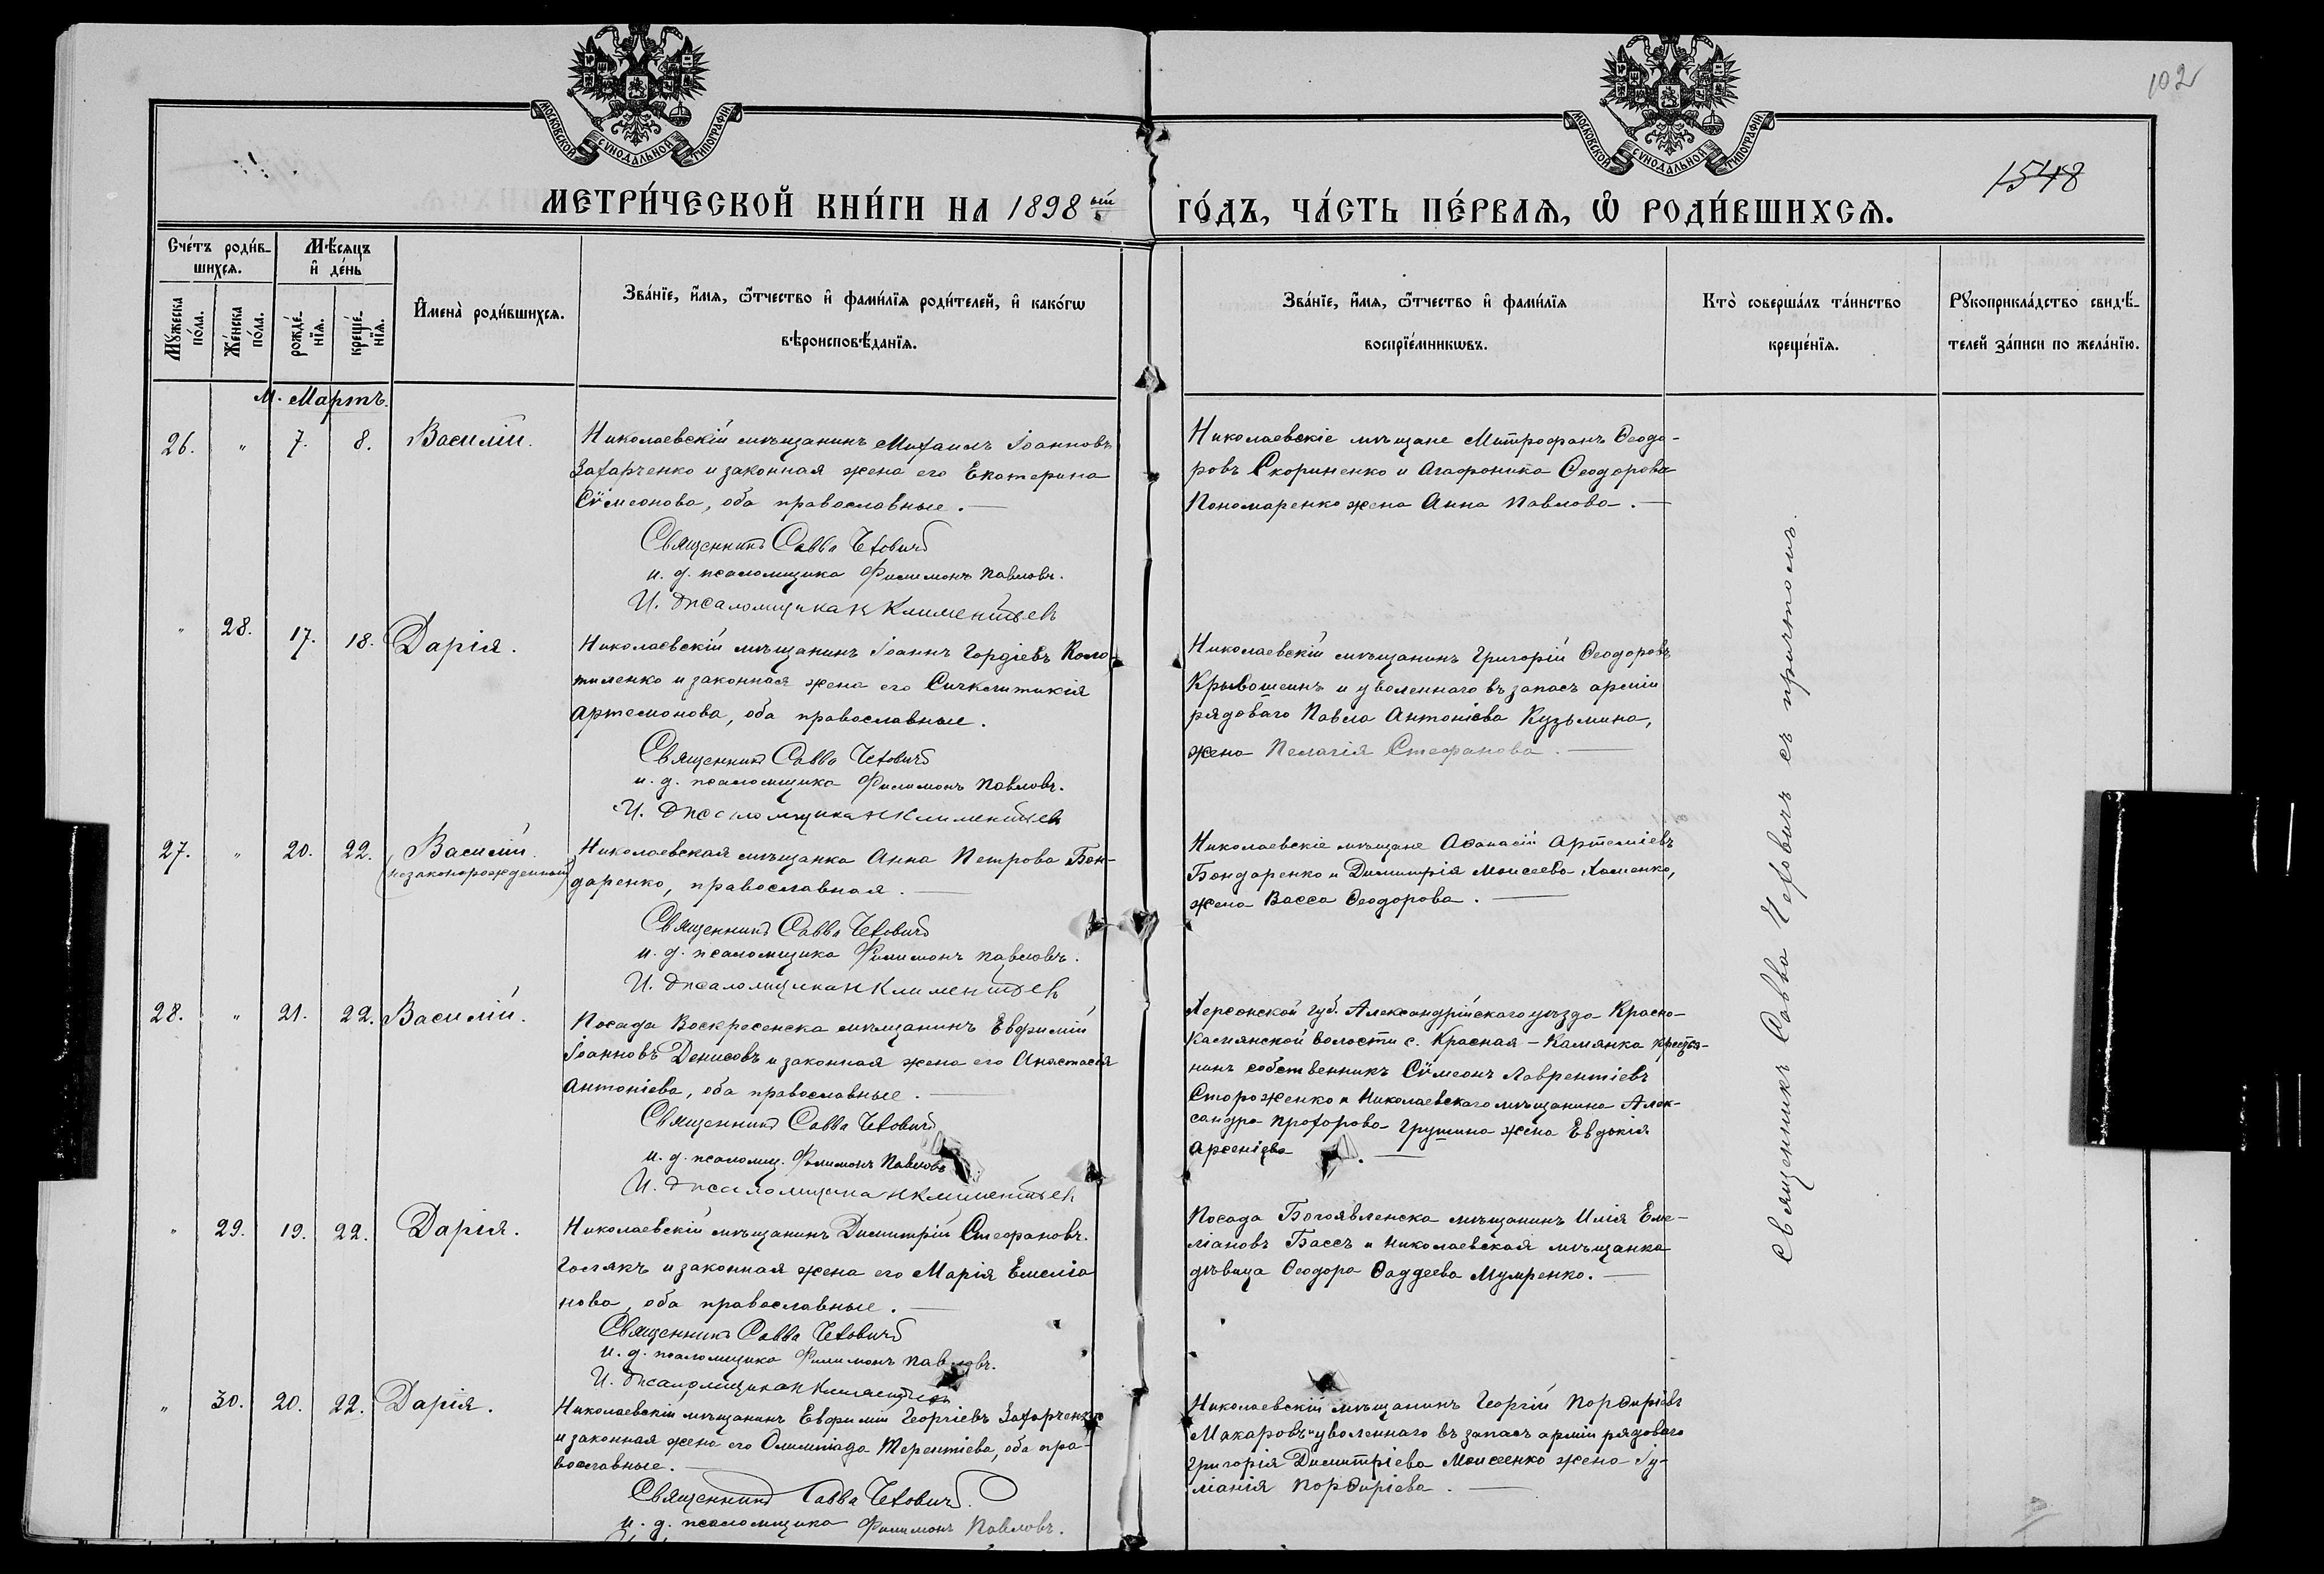 102
МОСКОВСКОЙ СУНОДАЛЬНОЙ ТИПОГРАФІИ
МОСКОВСКОЙ СУНОДАЛЬНОЙ ТИПОГРАФІИ
1548
МЕТРИ́ЧЕСКОЙ КНИ́ГИ НА 1898 ый ГО́ДЪ, ЧА́СТЬ ПЕ́РВАѦ, Ѡ҆ РОДИ́ВШИХСѦ.
Сче́тъ роди́в-
шихсѧ.
Мꙋ́жеска по́ла.
Же́нска по́ла.
Мѣ́сѧцъ
и҆ де́нь
рожде́-
нїѧ.
креще́-
нїѧ.
И҆мена̀ роди́вшихсѧ.
Зва́нїе, и҆́мѧ, ѻ҆́тчество и҆ фами́лїѧ роди́телей, и҆ како́гѡ
вѣроисповѣ́данїѧ.
Зва́нїе, и҆́мѧ, ѻ҆́тчество и҆ фами́лїѧ
воспрїе́мникѡвъ.
Кто̀ соверша́лъ та́инство
креще́нїѧ.
Рꙋкоприкла́дство свидѣ́-
телей за́писи по жела́нїю.
М. Мартъ.
26. " 7. 8. Василій.
Николаевскій мѣщанинъ Михаилъ Іоанновъ
Захарченко и законная жена его Екатерина
Сѵмеонова, оба православные.
Священникъ Савва Чехович
и. д. псаломщика Филимонъ Павловъ.
И. д псаломщика Н Климентьев
Николаевскіе мѣщане Митрофанъ Ѳеодо-
ровъ Скориненко и Агафоника Ѳеодорова
Пономаренко жена Анна Павлова.
" 28. 17. 18. Дарія.
Николаевскій мѣщанинъ Іоаннъ Гордіевъ Коло-
тиленко и законная жена его Синклитикія
Артемонова, оба православные.
Священникъ Савва Чехович
и. д. псаломщика Филимонъ Павловъ.
И. д псаломщика Н Климентьев
Николаевскій мѣщанинъ Григорій Ѳеодоровъ
Крывошеинъ и уволеннаго въ запасъ арміи
рядоваго Павла Антоніева Кузьмина,
жена Пелагія Стефанова.
27. " 20. 22. Василій.
(незаконорожденный)
Николаевская мѣщанка Анна Петрова Бон-
даренко, православная.
Священникъ Савва Чехович
и. д. псаломщика Филимонъ Павловъ.
И. д псаломщика Н Климентьев
Николаевскіе мѣщане Аѳанасій Артеміевъ
Бондаренко и Димитрія Моисеева Хоменко,
жена Васса Ѳеодорова.
28. " 21. 22. Василій.
Посада Воскресенска мѣщанинъ Евфимій
Іоанновъ Денисовъ и законная жена его Анастасія
Антоніева, оба православные.
Священникъ Савва Чехович
и. д. псаломщ. Филимонъ Павловъ
И. д псаломщика Н Климентьев
Херсонской губ. Александрійскаго уѣзда Красно-
Камянской волости с. Красная-Камянка крестья-
нинъ собственникъ Сѵмеонъ Лаврентіевъ
Стороженко и Николаевскаго мѣщанина Алек-
сандра Прохорова Грушина жена Евдокія
Арсеніева.
" 29. 19. 22. Дарія.
Николаевскій мѣщанинъ Димитрій Стефановъ.
Голякъ и законная жена его Марія Емеліа
нова, оба православные.
Священникъ Савва Чехович
и. д. псаломщика Филимонъ Павловъ.
И. д псаломщика Н Климентьев
Посада Богоявленска мѣщанинъ Илія Еме-
ліановъ Бассъ и Николаевская мѣщанка
дѣвица Ѳеодора Ѳаддеева Мумренко.
" 30. 20. 22. Дарія.
Николаевскій мѣщанинъ Евфимій Георгіевъ Захарченко
и законная жена его Олимпіада Терентіева, оба пра-
вославные.
Священникъ Савва Чехович.
и. д. псаломщика Филимонъ Павловъ.
Николаевскій мѣщанинъ Георгій Порфиріевъ
Макаровъ и уволеннаго въ запасъ арміи рядоваго
Григорія Димитріева Моисеенко жена Іу-
ліанія Порфиріева.
Священникъ Савва Чеховичъ съ причтомъ.